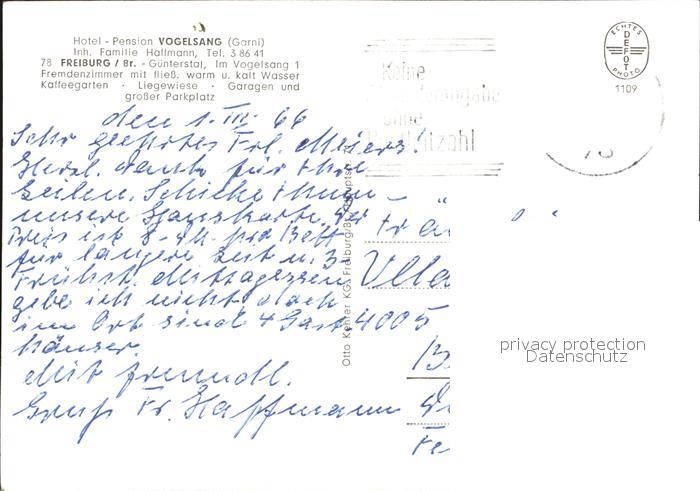 Hotel - Pension VOGELSANG (Garni)
Inh. Familie Haffmann, Tel. 3 86 41
78 FREIBURG / Br. - Günterstal, Im Vogelsang 1
Fremdenzimmer mit fließ. warm u. kalt Wasser
Kaffeegarten · Liegewiese · Garagen und
großer Parkplatz
den 1. III. 66
Sehr geehrtes Frl. Meiers!
Herzl. Dank für Ihre
Zeilen. Schicke Ihnen
unsere Hauskarte. Der
Preis ist 8.- DM. pro Bett
für längere Zeit u.
Frühst. Mittagessen
gebe ich nicht, doch
im Ort sind 4 Gast-
häuser.
Mit freundl.
Gruß Fr. Haffmann
Otto Kehrer KG. Freiburg/Br.
Keine
ohne
ECHTES
DEFOT
PHOTO
1109
4005
privacy protection
Datenschutz